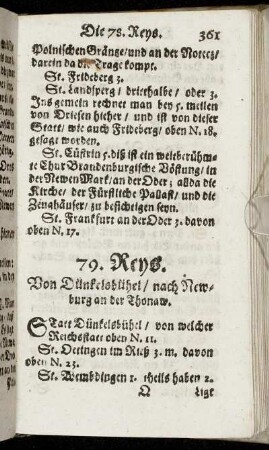 Die 78. Reys. 361
Polnischen Gränge/ und an der Notteg/
darein da die Trage kompt.
St. Frideberg 3.
St. Landsperg / dritthalbe / oder 3.
Ins gemein rechnet man bey 5. meilen
von Driesen hieher / und ist von dieser
Statt/ wie auch Frideberg/ oben N. 18.
gesagt worden.
St. Cüstrin 5. diß ist ein weitberühm-
te Chur Brandenburgische Vöstung/ in
der Newen Mark/ an der Oder; allda die
Kirche/ der Fürstliche Pallast/ und die
Zeughäuser/ zu besichtigen seyn.
St. Frankfurt an der Oder 3. davon
oben N. 17.
79. Reys.
Von Dünkelsbühel/ nach New-
burg an der Thonaw.
Statt Dünkelsbühel/ von welcher
Reichsstatt oben N. 11.
St. Oetingen im Rieß 3. m. davon
oben N. 23.
St. Wembdingen 1. theils haben 2.
Q Ligt